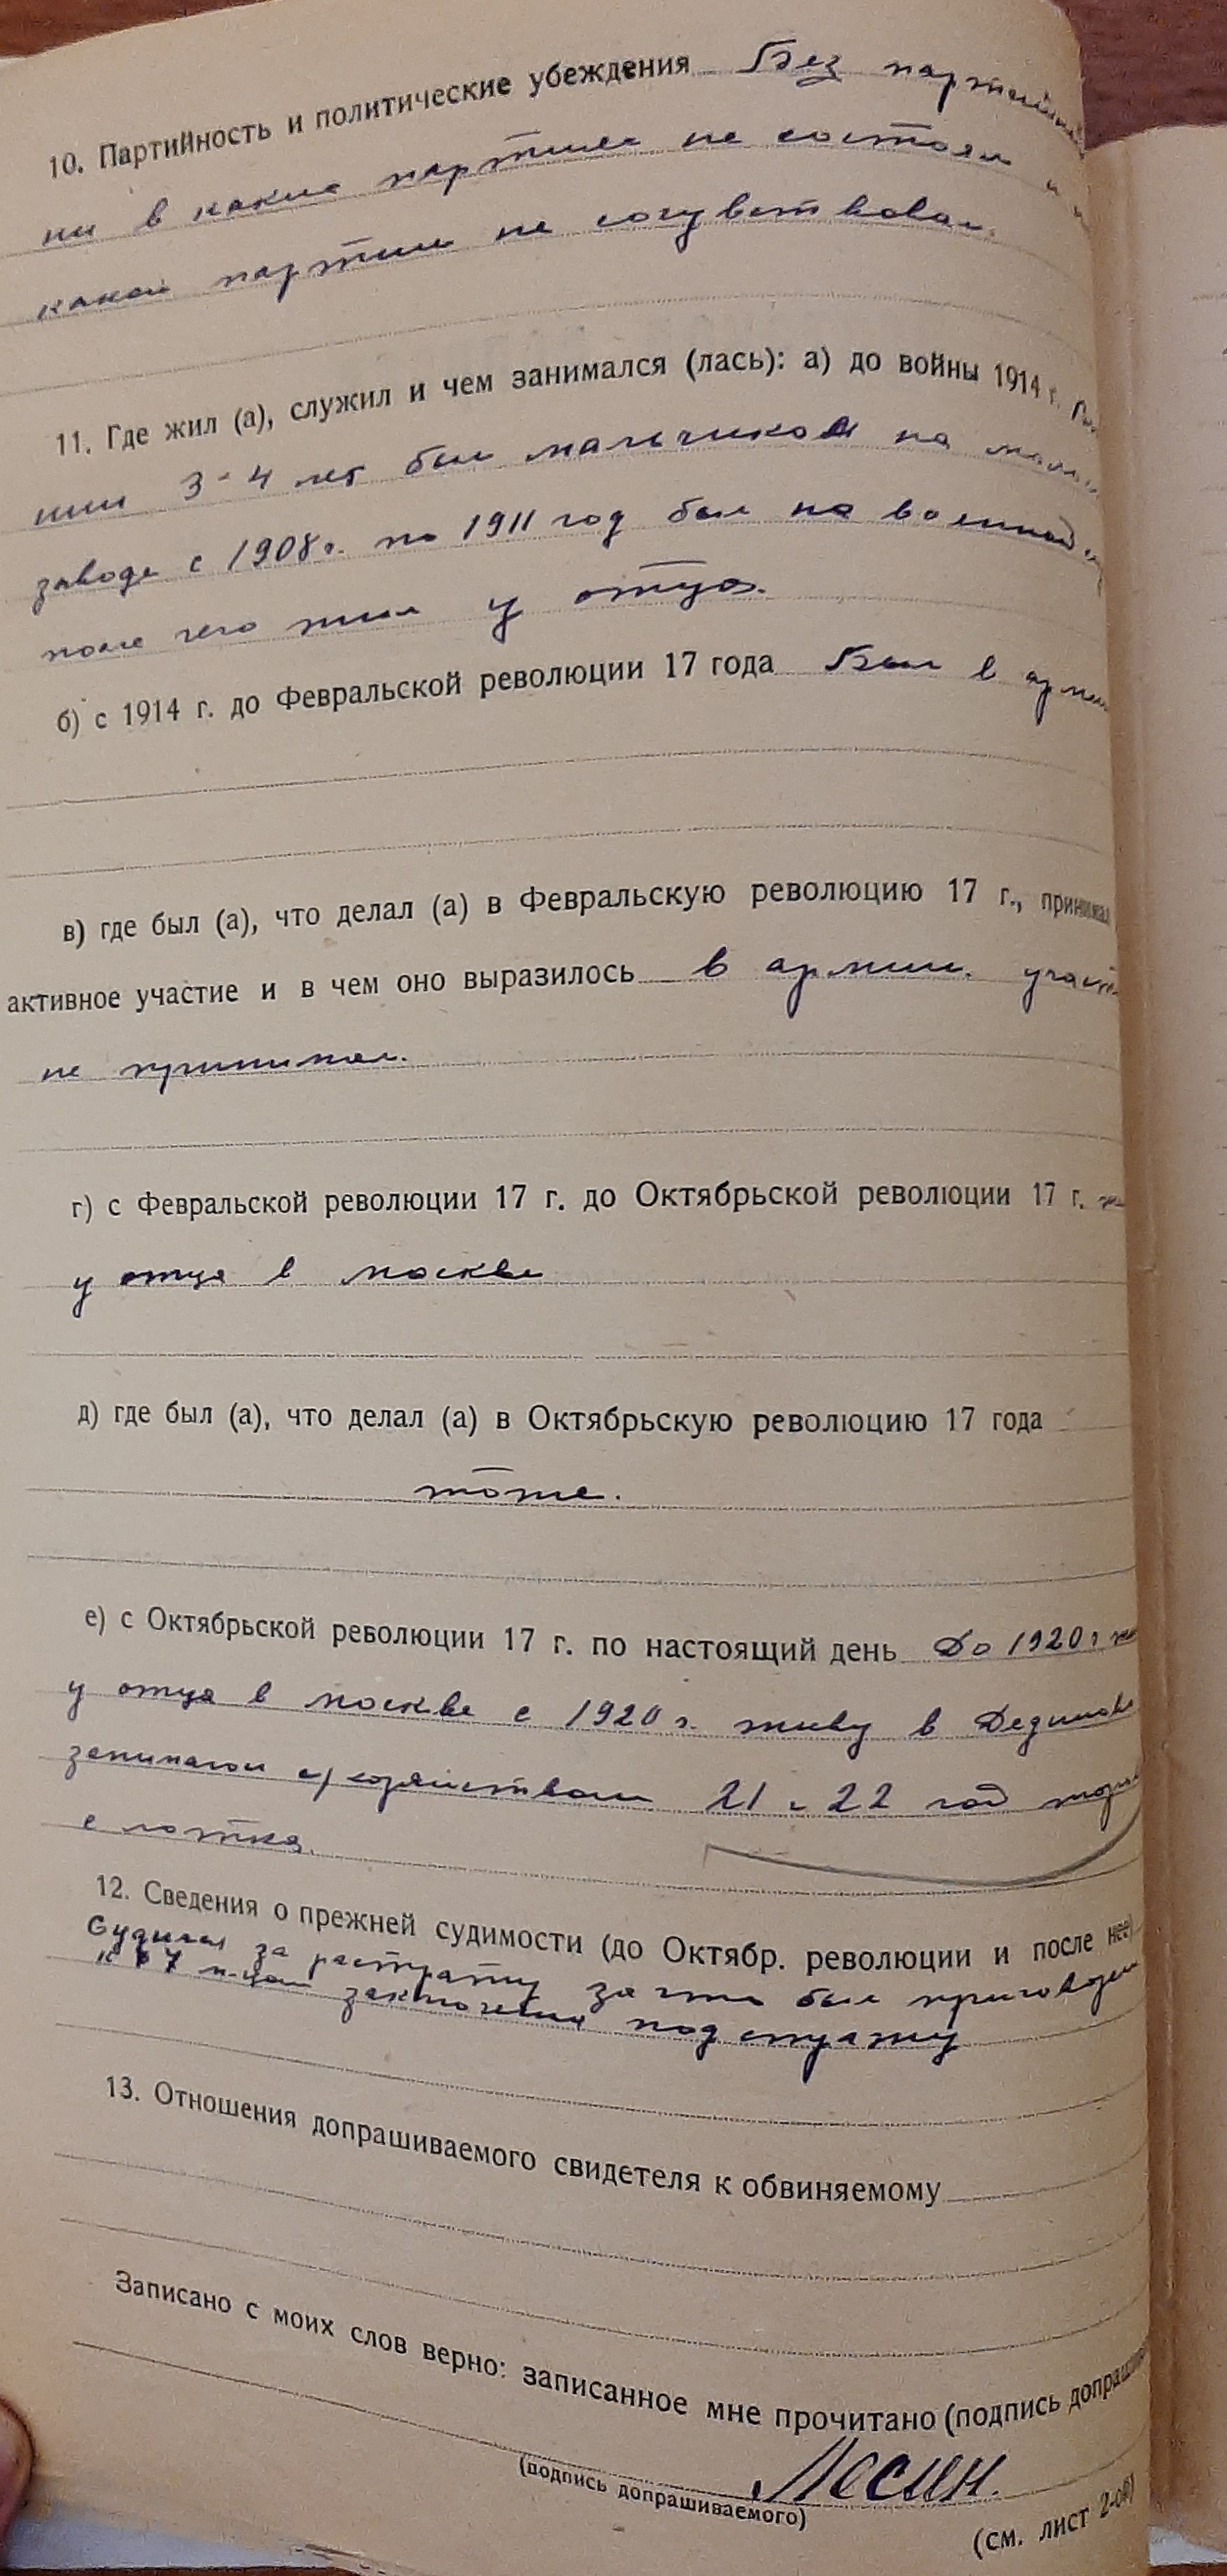 10. Партийность и политические убеждения Без партийный
ни в каких партиях не состоял и
какой партии не сочувствовал.
11. Где жил (а), служил и чем занимался (лась): а) до войны 1914 г.
3-4 лет был мальчиком на
заводе с 1908г. по 1911 год был на военной
после чего жил у отца.
б) с 1914 г. до Февральской революции 17 года Был в армии
в) где был (а), что делал (а) в Февральскую революцию 17 г., принимал
активное участие и в чем оно выразилось в армии. участия
не принимал.
г) с Февральской революции 17 г. до Октябрьской революции 17 г.
у отца в москве
д) где был (а), что делал (а) в Октябрьскую революцию 17 года
тоже.
е) с Октябрьской революции 17 г. по настоящий день До 1920г
у отца в москве с 1920 г. живу в Дединове
занимаюсь с/хозяйством 21 и 22 год торговал
с лотка.
12. Сведения о прежней судимости (до Октябр. революции и после нее)
Судился за растрату за что был приговорен
к 7 м-цам заключения под стражу
13. Отношения допрашиваемого свидетеля к обвиняемому
Записано с моих слов верно: записанное мне прочитано (подпись
Лесин.
(подпись допрашиваемого)
(см. лист 2-ой)